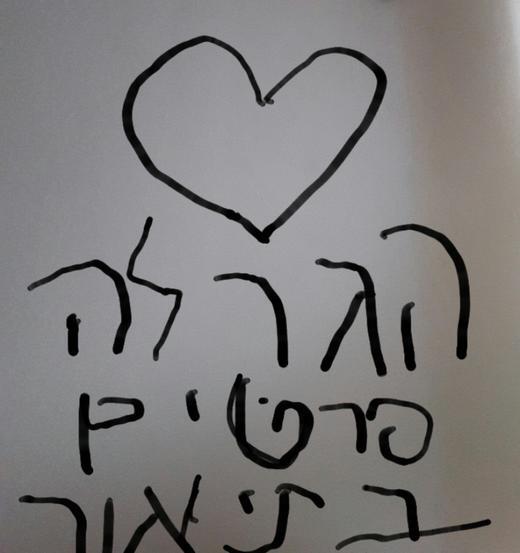 הגרלה
פרטים
בתיאור